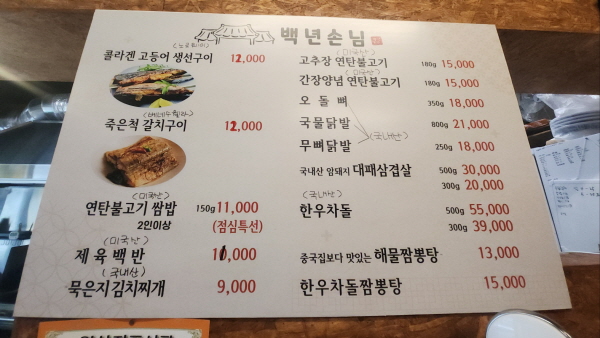 백년손님
(노르웨이)
콜라겐 고등어 생선구이 12,000
(베네수엘라)
죽은척 갈치구이 12,000
(미국산)
연탄불고기 쌈밥 150g 11,000
2인이상 (점심특선)
(미국산)
제육백반 10,000
(국내산)
묵은지김치찌개 9,000
(미국산)
고추장 연탄불고기 180g 15,000
(미국산)
간장양념 연탄불고기 180g 15,000
오돌뼈 350g 18,000
국물닭발 800g 21,000
(국내산)
무뼈닭발 250g 18,000
국내산 암돼지 대패삼겹살 500g 30,000
300g 20,000
(국내산)
한우차돌 500g 55,000
300g 39,000
중국집보다 맛있는 해물짬뽕탕 13,000
한우차돌짬뽕탕 15,000